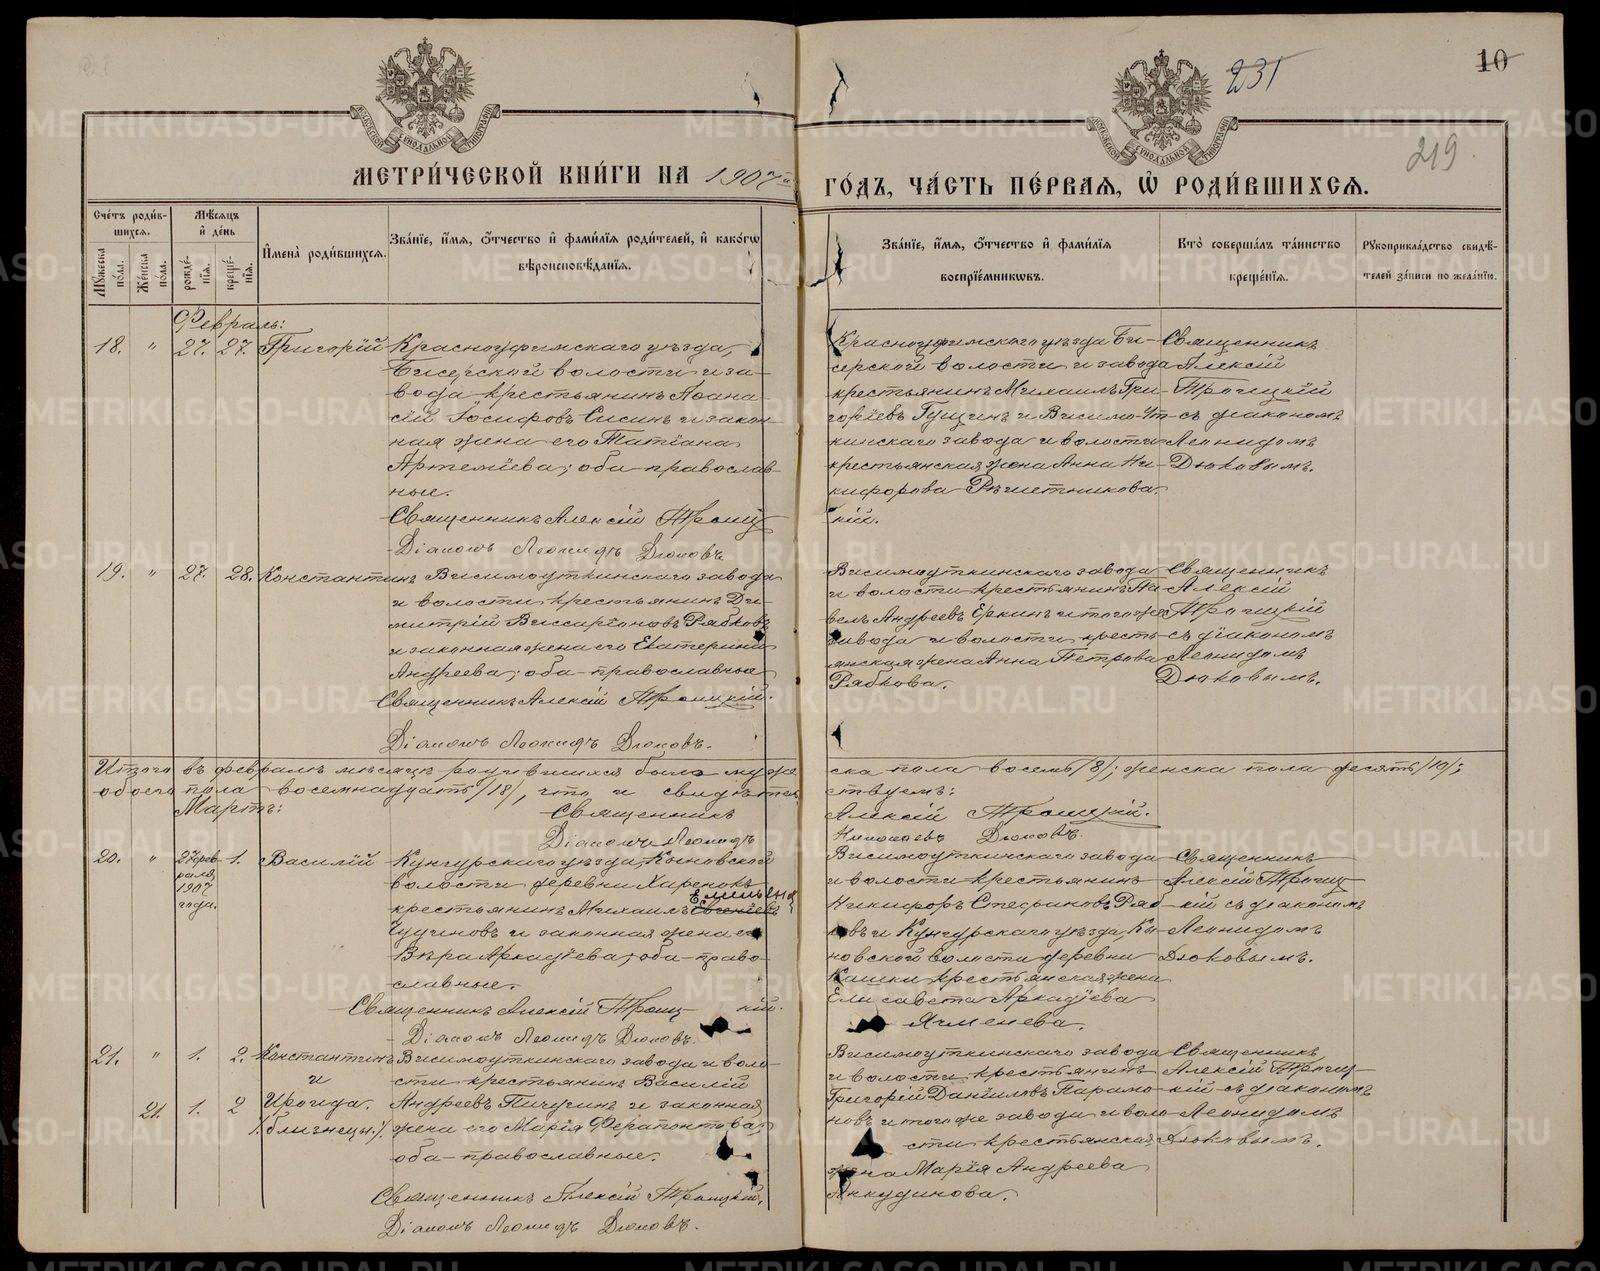 231
10
219
МЕТРИ́ЧЕСКОЙ КНИ́ГИ НА 1907й ГО́ДЪ, ЧА́СТЬ ПЕ́РВАЯ, Ѽ РОДИ́ВШИХСЯ.
Сче́тъ роди́вшихся.
Мꙋжеска по́ла.
Же́нска по́ла.
Мѣ́сяцъ и҆ де́нь
рожде́нїя.
креще́нїя.
И҆мена̀ роди́вшихся.
Зва́нїе, и҆́мя, ѻ҆́тчество и҆ фами́лїя роди́телей, и҆ како́гѡ вѣроисповѣ́данїя.
Зва́нїе, и҆́мя, ѻ҆́тчество и҆ фами́лїя воспрїе́мниковъ.
Кто̀ соверша́лъ та́инство креще́нїя.
Рꙋкоприкла́дство свидѣ́телей за́писи по жела́нїю.
Февраль:
18. " 27. 27. Григорій
Красноуфимскаго уѣзда,
Бисерской волости и за-
вода крестьянинъ Аѳана
сій Іосифовъ Сисинъ и закон-
ная жена его Татіана
Артеміева; оба православ-
ные.
Священникъ Алексій Троиц
кій.
Діаконъ Леонидъ Дюковъ
Красноуфимскаго уѣзда Би-
серской волости и завода
крестьянинъ Михаилъ Гри-
горіевъ Гущинъ и Висимо-Ут-
кинскаго завода и волости
крестьянская жена Анна Ни-
кифорова Рѣшетникова.
Священникъ
Алексій
Троицкій
съ діакономъ
Леонидомъ
Дюковымъ.
19. " 27. 28. Константинъ
Висимоуткинскаго завода
и волости крестьянинъ Ди-
митрій Виссаріоновъ Рябковъ
и законная жена его Екатерина
Андреева; оба православные
Священникъ Алексій Троицкій.
Діаконъ Леонидъ Дюковъ.
Висимоуткинскаго завода
и волости крестьянинъ Па-
велъ Андреевъ Еркинъ и того же
завода и волости кресть-
янская жена Анна Петрова
Рябкова.
Священникъ
Алексій
Троицкій
съ діакономъ
Леонидомъ
Дюковымъ.
Итого въ февралѣ мѣсяцѣ родившихся было муже ска пола восемь /8/; женска пола десять /10/;
обоего пола восемнадцать /18/, что и свидѣтель ствуемъ:
Священникъ Алексій Троицкій.
Діаконъ Леонидъ Дюковъ.
Мартъ:
20. " 27 фев
раля
1907
года.
1. Василій
Кунгурскаго уѣзда, Кыновской
волости деревни Харенокъ
Емильяно
крестьянинъ Михаилъ Евгеніевъ
Чудиновъ и законная жена его
Вѣра Аркадіева; оба право-
славные.
Священникъ Алексій Троиц- кій.
Діаконъ Леонидъ Дюковъ.
Висимоуткинскаго завода
и волости крестьянинъ
Никифоръ Стефановъ Ряб-
ковъ и Кунгурскаго уѣзда, Кы-
новской волости деревни
Кашки крестьянская жена
Елисавета Аркадіева
Ячменева.
Священникъ
Алексій Троиц-
кій съ діакономъ
Леонидомъ
Дюковымъ.
21. " 1. 2. Константинъ
и
21. 1. 2 Ироида.
/близнецы/.
Висимоуткинскаго завода и воло-
сти крестьянинъ Василій
Андреевъ Пичугинъ и законная
жена его Марія Ферапонтова;
оба православные.
Священникъ Алексій Троицкій.
Діаконъ Леонидъ Дюковъ.
Висимоуткинскаго завода
и волости крестьянинъ
Григорій Даніиловъ Парамо-
новъ и того же завода и воло
сти крестьянская
жена Марія Андреева
Анкудинова.
Священникъ
Алексій Троиц-
кій съ діакономъ
Леонидомъ
Дюковымъ.
METRIKI.GASO-URAL.RU